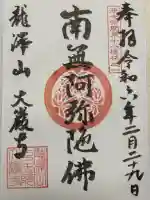 奉拝 令和六年二月二十九日
南無阿弥陀佛
龍澤山 大巌寺